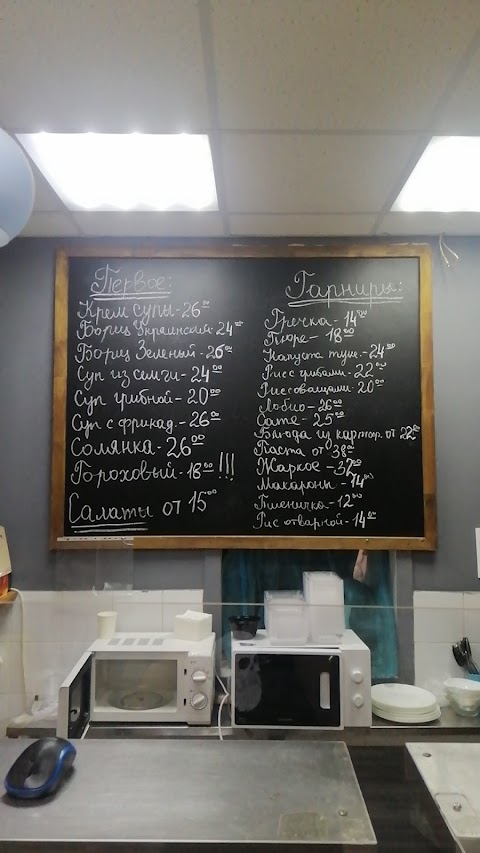 Первое:
Крем супы - 26 00
Борщ Украинский - 24 00
Борщ Зеленый - 26 00
Суп из семги - 24 00
Суп грибной - 20 00
Суп с фрикад. - 26 00
Солянка - 26 00
Гороховый - 18 00 !!!
Салаты от 15 00
Гарниры:
Гречка - 14 00
Пюре - 18 00
Капуста туше - 24 00
Рис с грибами - 22 00
Рис с овощами - 20 00
Лобио - 26 00
Сате - 25 00
Блюда из картоф. от 22 00
Паста от 38 00
Жаркое - 32 00
Макароны - 14 00
Пшеничка - 12 00
Рис отварной - 14 00